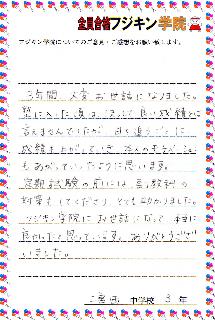 全員合格フジキン学院
フジキン学院についてのご意見・ご感想をお願い致します。
3年間、大変お世話になりました。
塾に入った頃は、決して良い成績とは
言えませんでしたが、日を追うごとに
成績も上がっていき、
もあがっていったように思います。
定期試験の前には、各教科の
対策もしてくださりとても助かりました。
フジキン学院にお世話になって本当に
良かったと思っています。ありがとうござ
いました。
中学校 3年